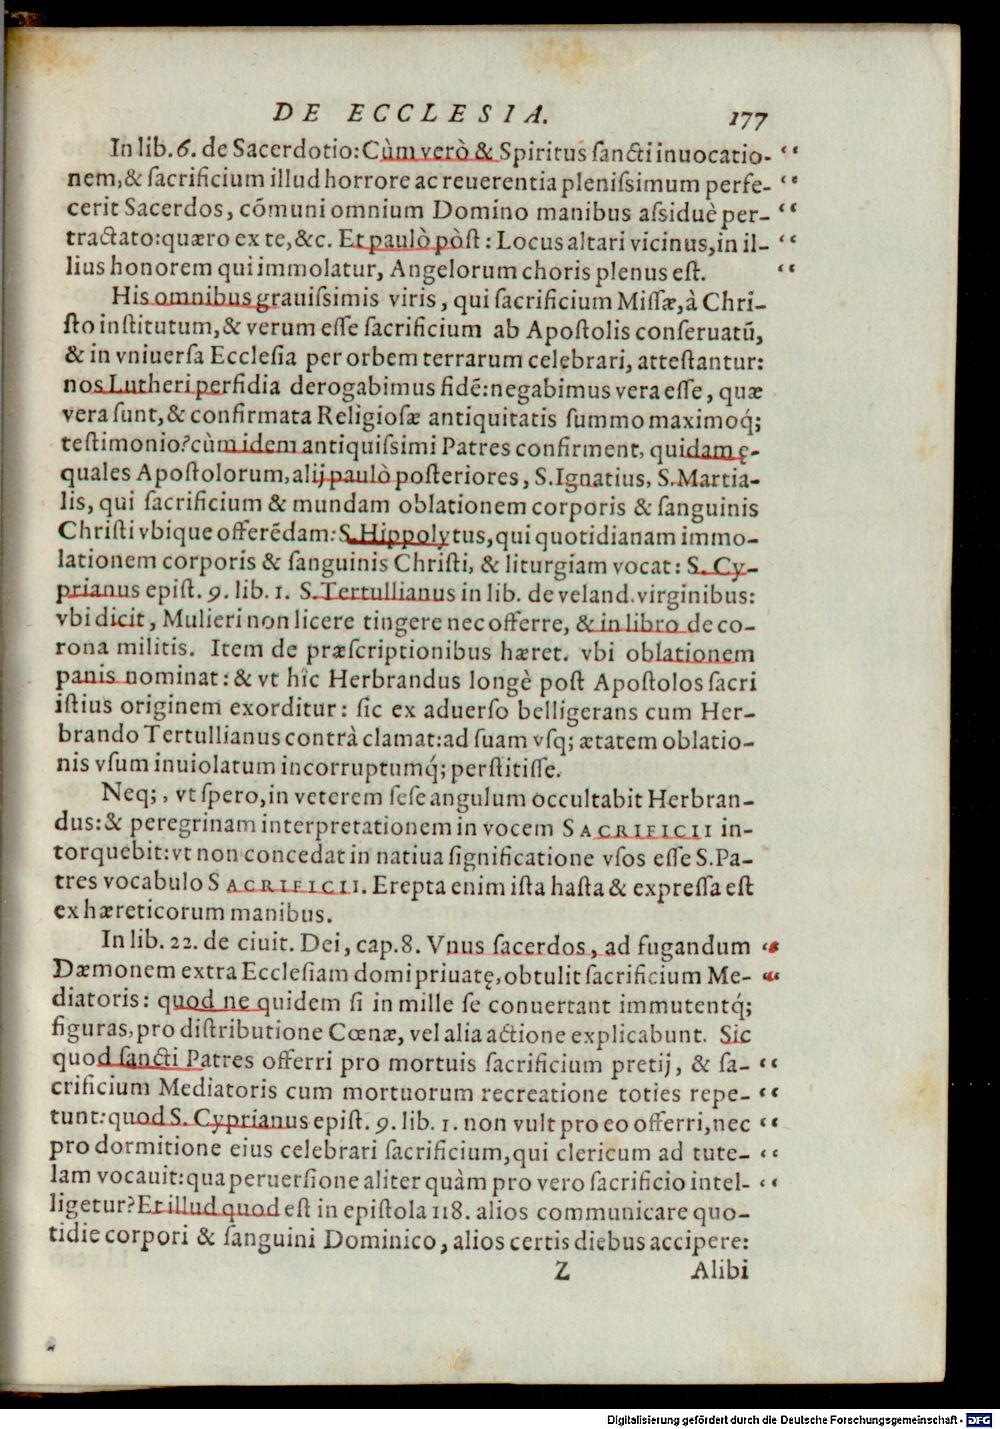 DE ECCLESIA. 177
In lib. 6. de Sacerdotio: Cùm verò & Spiritus sancti inuocatio- “
nem, & sacrificium illud horrore ac reuerentia plenissimum perfe- “
cerit Sacerdos, cōmuni omnium Domino manibus assiduè per- “
tractato: quæro ex te, &c. Et paulò pòst: Locus altari vicinus, in il- “
lius honorem qui immolatur, Angelorum choris plenus est. “
His omnibus grauissimis viris, qui sacrificium Missæ, à Chri-
sto institutum, & verum esse sacrificium ab Apostolis conseruatū,
& in vniuersa Ecclesia per orbem terrarum celebrari, attestantur:
nos Lutheri perfidia derogabimus fidē: negabimus vera esse, quæ
vera sunt, & confirmata Religiosæ antiquitatis summo maximoq́;
testimonio? cùm idem antiquissimi Patres confirment, quidam ę-
quales Apostolorum, alij paulò posteriores, S. Ignatius, S. Martia-
lis, qui sacrificium & mundam oblationem corporis & sanguinis
Christi vbique offerēdam: S. Hippolytus, qui quotidianam immo-
lationem corporis & sanguinis Christi, & liturgiam vocat: S. Cy-
prianus epist. 9. lib. 1. S. Tertullianus in lib. de veland. virginibus:
vbi dicit, Mulieri non licere tingere nec offerre, & in libro de co-
rona militis. Item de præscriptionibus hæret. vbi oblationem
panis nominat: & vt hîc Herbrandus longè post Apostolos sacri
istius originem exorditur: sic ex aduerso belligerans cum Her-
brando Tertullianus contrà clamat: ad suam vsq; ætatem oblatio-
nis vsum inuiolatum incorruptumq́; perstitisse.
Neq;, vt spero, in veterem sese angulum occultabit Herbran-
dus: & peregrinam interpretationem in vocem SACRIFICII in-
torquebit: vt non concedat in natiua significatione vsos esse S. Pa-
tres vocabulo SACRIFICII. Erepta enim ista hasta & expressa est
ex hæreticorum manibus.
In lib. 22. de ciuit. Dei, cap. 8. Vnus sacerdos, ad fugandum “
Dæmonem extra Ecclesiam domi priuatę, obtulit sacrificium Me- “
diatoris: quod ne quidem si in mille se conuertant immutentq́;
figuras, pro distributione Cœnæ, vel alia actione explicabunt. Sic
quod sancti Patres offerri pro mortuis sacrificium pretij, & sa- “
crificium Mediatoris cum mortuorum recreatione toties repe- “
tunt: quod S. Cyprianus epist. 9. lib. 1. non vult pro eo offerri, nec “
pro dormitione eius celebrari sacrificium, qui clericum ad tute- “
lam vocauit: qua peruersione aliter quàm pro vero sacrificio intel- “
ligetur? Et illud quod est in epistola 118. alios communicare quo-
tidie corpori & sanguini Dominico, alios certis diebus accipere:
Z Alibi
Digitalisierung gefördert durch die Deutsche Forschungsgemeinschaft - DFG